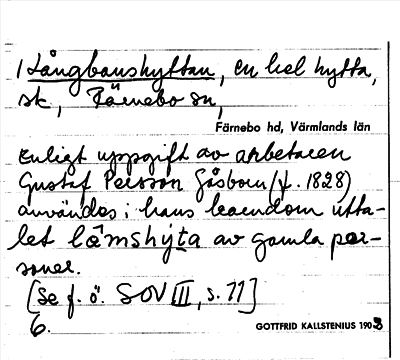 1 Långbanshyttan, en hel hytta,
sk, Färnebo sn,
Färnebo hd, Värmlands län
Enligt uppgift av arbetaren
Gustaf Persson Gåsborn (f. 1828)
användes i hans barndom utta-
let læmshýta av gamla per-
soner.
[Se f. ö. SOV III, s. 11]
6.
GOTTFRID KALLSTENIUS 1903